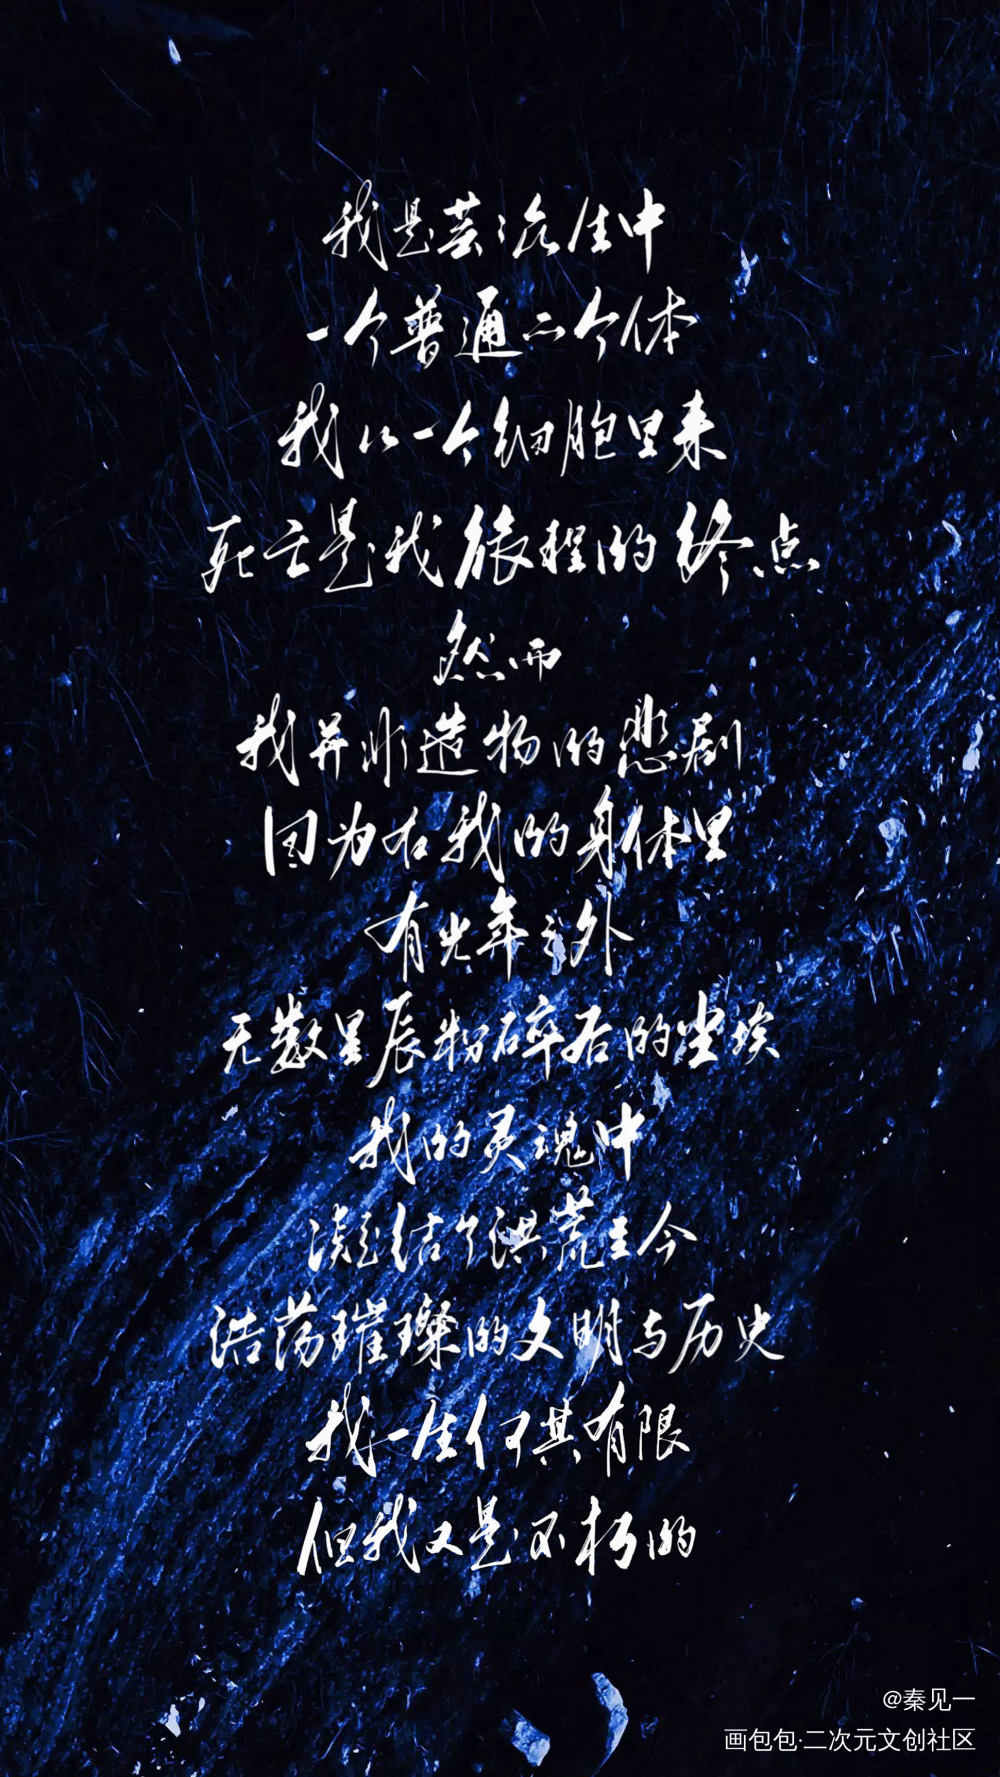 我是芸芸众生中
一个普通的个体
我从一个细胞里来
死亡是我旅程的终点
然而
我并非造物的悲剧
因为在我的身体里
有光年之外
无数星辰粉碎后的尘埃
我的灵魂中
凝结了洪荒至今
浩荡璀璨的文明与历史
我一生何其有限
但我又是不朽的
@秦见一
画包包·二次元文创社区